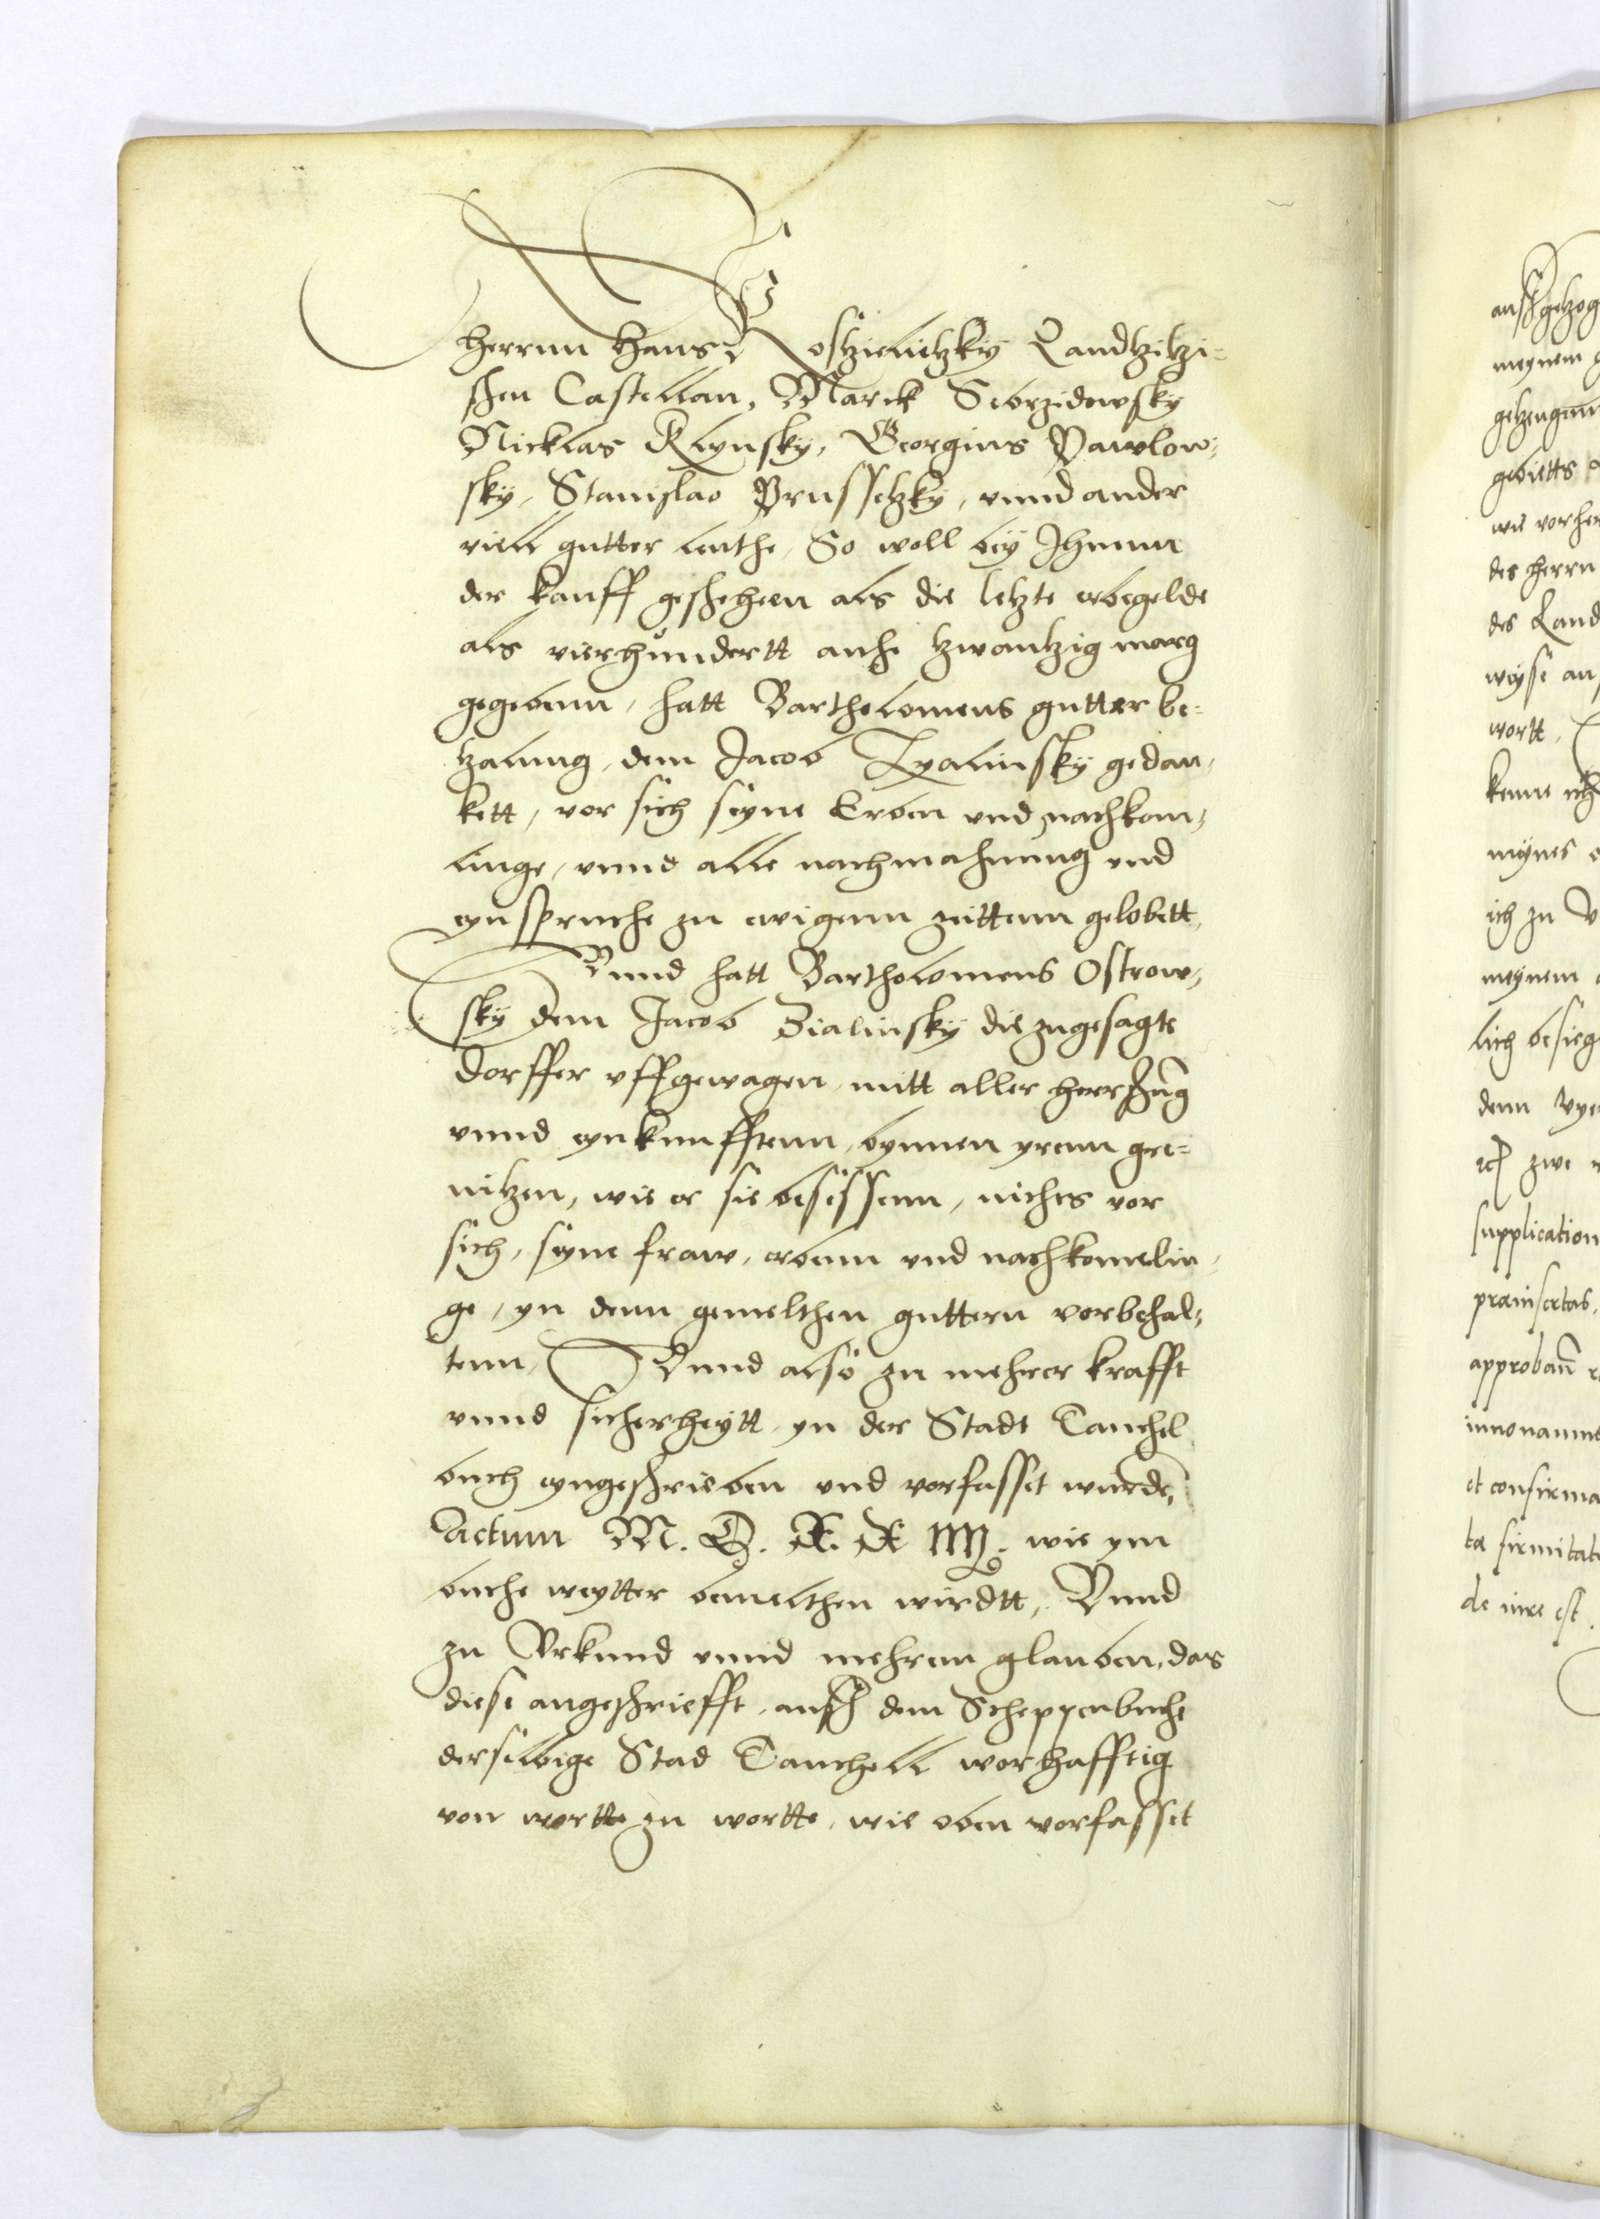 herrnn Hans Kostzieletzky Landtzitzi=
schen Castellan, Marck Sebrzidowsky
Nicklas Klynsky, Georgius Pawlow-
sky, Stanislao Prussetzky, vnnd ander
viell gutter leuthe, So woll bey Ihnnn
der kauff geschehenn als die letzte erbegelde
als vierhundertt auch tzwantzig marg
gegebenn, hatt Bartholomeus gutter be=
tzalung, dem Jacob Tzyalinsky gedan-
kett, vor sich seyne Erben vnd nachkom-
linge, vnnd alle nachmahnung vnd
eynspruche zu ewigenn zeittenn gelobett,
Vnnd hatt Bartholomeus Ostrow-
sky dem Jacob Zialinsky die zugesagte
dorffer vffgewagen, mitt aller herrschung
vnnd eynkunfftenn, bynnen yrenn gre=
nitzen, wie er sie besessenn, nichts vor
sich, seyne fraw, erbenn vnd nachkomelin-
ge, yn denn gemelthen guttern vorbehal-
tenn, Vnnd also zu mehrer krafft
vnnd sicherheytt, yn der Stadt Tauchel
buch eyngeschrieben vnd vorfasset wurde,
Actum M. D. X. X IIII. wie ym
buche weytter bemelthen wirdtt, Vnnd
zu Vrkund vnnd mehrenn glauben, das
diese angeschriefft, ausz dem Scheppenbuche
derselbige Stad Tauchell worhafftig
von wortte zu wortte, wie oben vorfasset
auszgetzog
meynem
getzeugenn
gebietts
wie vorher
des herrn
des Land
weyse an
wortt,
kenne ich
meynes
ich zu
meynem
lich besieg
denn
ich zwe
supplication
præinsertas,
approbann
innouann
et confirma
tæ firmitati
de iure est.